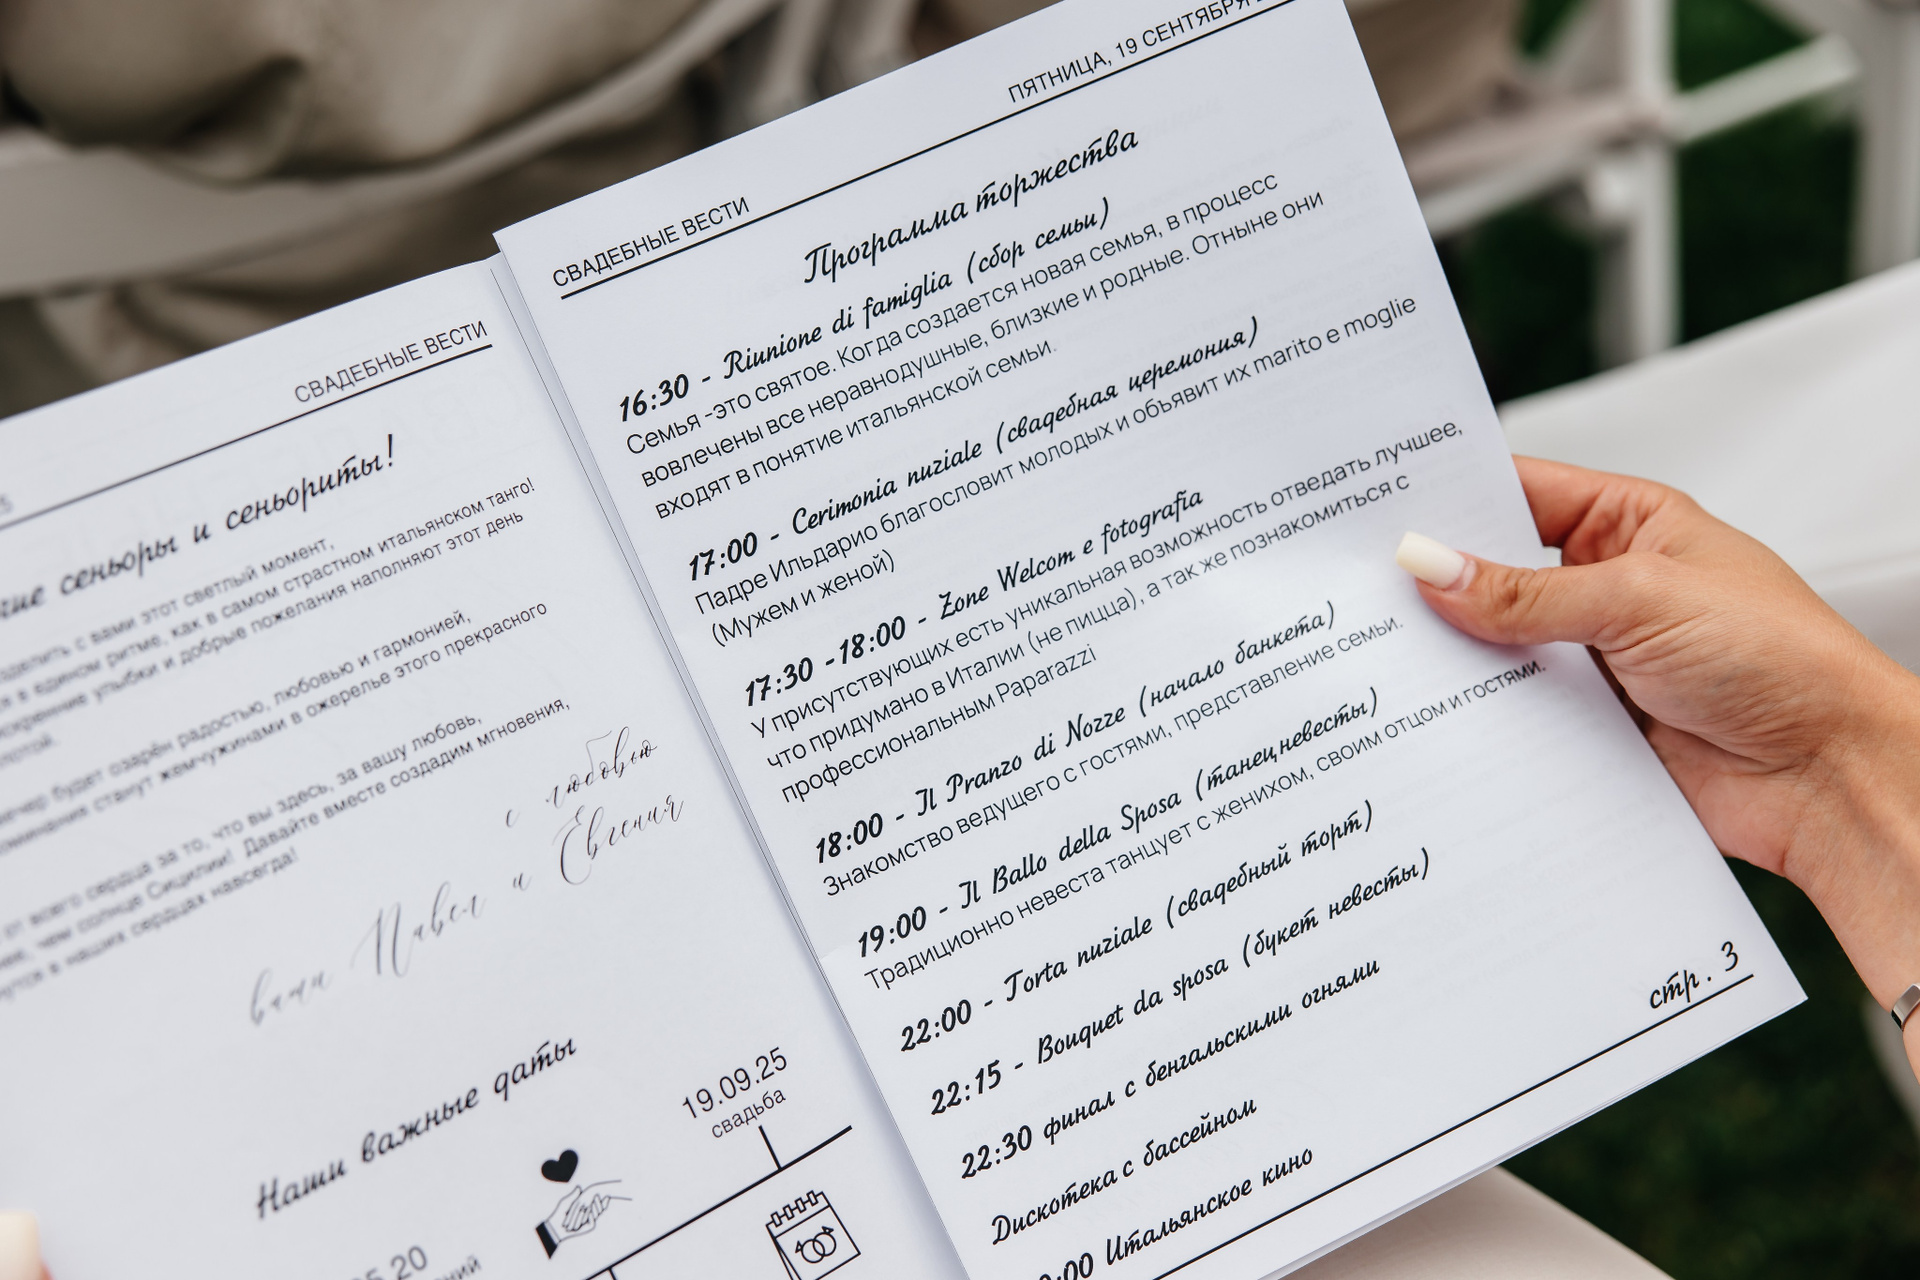 СВАДЕБНЫЕ ВЕСТИ
сеньоры и сеньориты!
с вами этот светлый момент,
в едином ритме, как в самом страстном итальянском танго!
искренние улыбки и добрые пожелания наполняют этот день
вечер будет озарён радостью, любовью и гармонией,
станут жемчужинами в ожерелье этого прекрасного
от всего сердца за то, что вы здесь, за вашу любовь,
чем солнце Сицилии! Давайте вместе создадим мгновения,
в наших сердцах навсегда!
с любовью
ваши Павел и Евгения
Наши важные даты
19.09.25
свадьба
5.20
СВАДЕБНЫЕ ВЕСТИ
ПЯТНИЦА, 19 СЕНТЯБРЯ
Программа торжества
16:30 - Riunione di famiglia (сбор семьи)
Семья -это святое. Когда создается новая семья, в процесс
вовлечены все неравнодушные, близкие и родные. Отныне они
входят в понятие итальянской семьи.
17:00 - Cerimonia nuziale (свадебная церемония)
Падре Ильдарио благословит молодых и объявит их marito e moglie
(Мужем и женой)
17:30 -18:00 - Zone Welcom e fotografia
У присутствующих есть уникальная возможность отведать лучшее,
что придумано в Италии (не пицца), а так же познакомиться с
профессиональным Paparazzi
18:00 - Il Pranzo di Nozze (начало банкета)
Знакомство ведущего с гостями, представление семьи.
19:00 - Il Ballo della Sposa (танец невесты)
Традиционно невеста танцует с женихом, своим отцом и гостями.
22:00 - Torta nuziale (свадебный торт)
22:15 - Bouquet da sposa (букет невесты)
22:30 финал с бенгальскими огнями
Дискотека с бассейном
:00 Итальянское кино
стр. 3